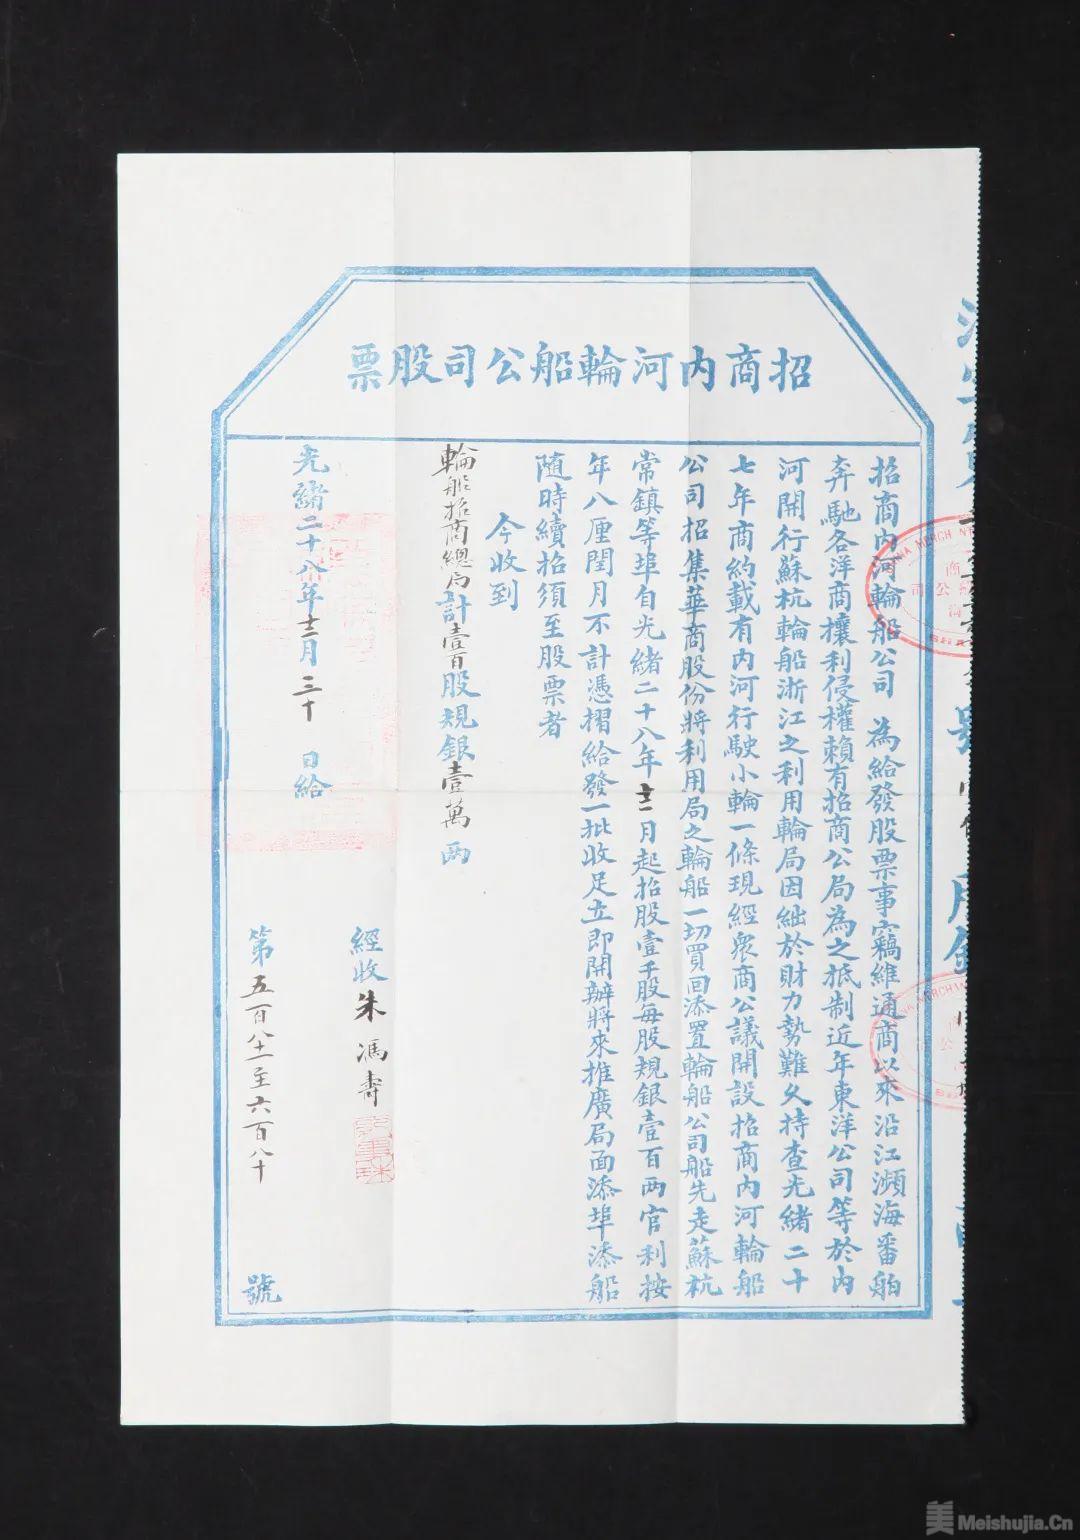 招商內河輪船公司股票
招商內河輪船公司 為給發股票事竊維通商以來沿江瀕海番舶
奔馳各洋商攘利侵權賴有招商公局為之抵制近年東洋公司等於內
河開行蘇杭輪船浙江之利用輪局因絀於財力勢難久持查光緒二十
七年商約載有內河行駛小輪一條現經衆商公議開設招商內河輪船
公司招集華商股份將利用局之輪船一切買回添置輪船公司船先走蘇杭
常鎮等埠自光緒二十八年十二月起招股壹千股每股規銀壹百兩官利按
年八厘閏月不計憑摺給發一批收足立即開辦將來推廣局面添埠添船
隨時續招須至股票者
今收到
輪船招商總局計壹百股規銀壹萬兩
經收朱馮壽
光緒二十八年十二月三十日給
第五百八十一至六百八十號
Meishujia.Cn